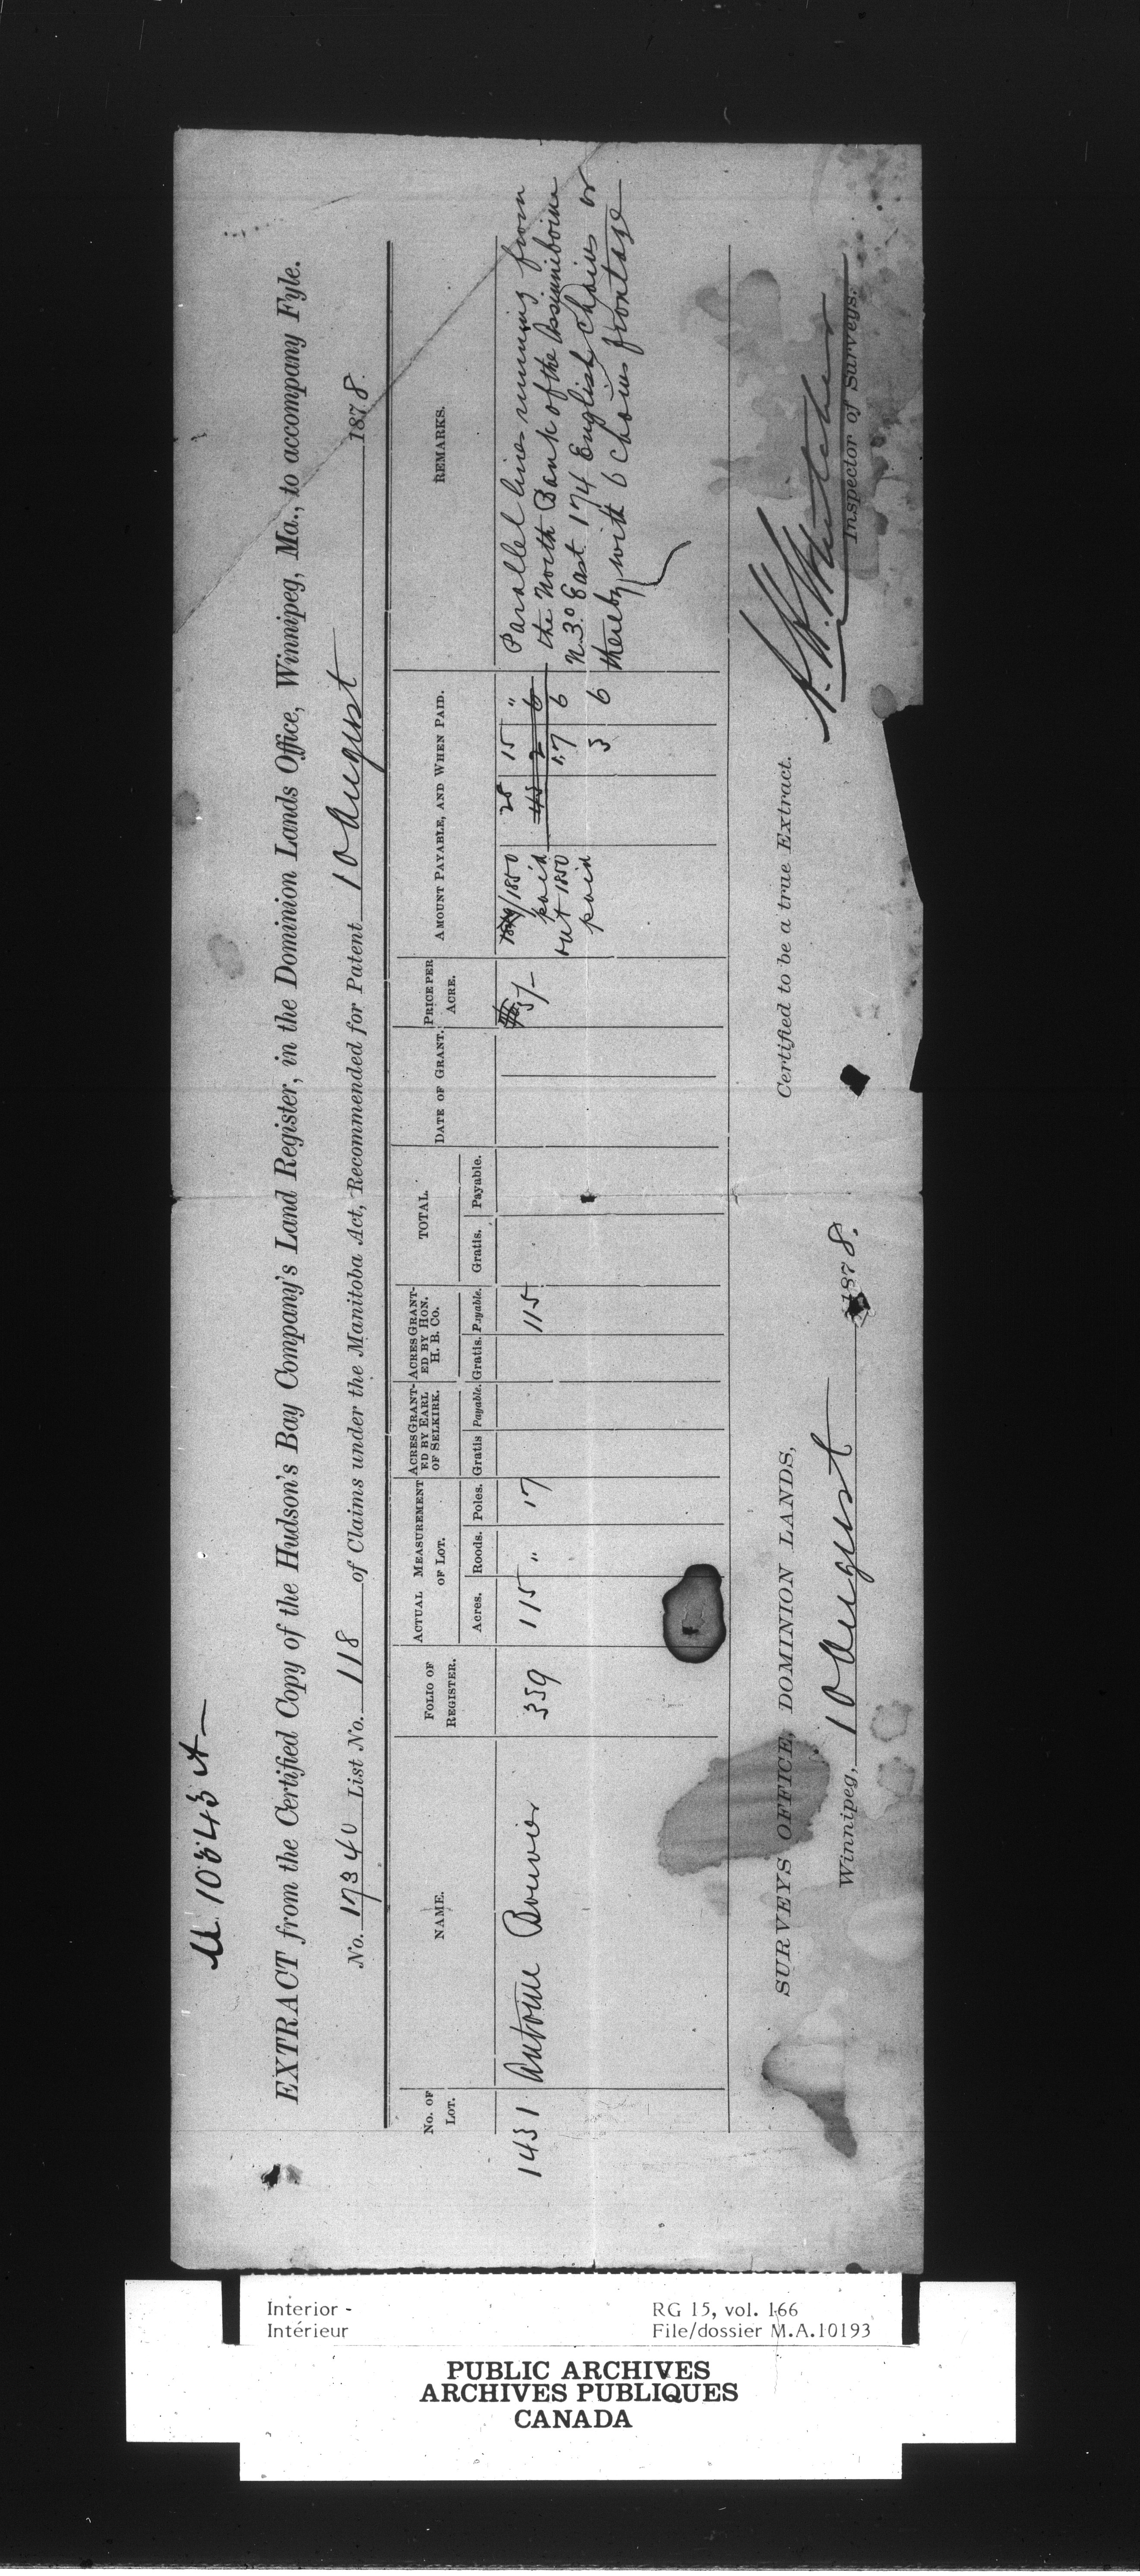 10543
EXTRACT from the Certified Copy of the Hudson's Bay Company's Land Register, in the Dominion Lands Office, Winnipeg, Ma., to accompany Fyle.
No. 1734 List No. 118 of Claims under the Manitoba Act, Recommended for Patent 10 August 1878.
No. OF LOT.
NAME.
FOLIO OF REGISTER.
ACTUAL MEASUREMENT OF LOT.
Acres. Roods. Poles.
ACRES GRANT-ED BY EARL OF SELKIRK.
Gratis Payable.
ACRES GRANT-ED BY HON. H. B. CO.
Gratis. Payable.
TOTAL.
Gratis. Payable.
DATE OF GRANT.
PRICE PER ACRE.
AMOUNT PAYABLE, AND WHEN PAID.
REMARKS.
1431 Antoine Bouvier 359 115 " 17 115 5/- 1850 28 15 "
paid 2 6
1850 17 6
paid 3 6
Parallel lines running from
the North Bank of the Assiniboine
N. 3° East 174 English Chains or
thereby with 6 Chains frontage
SURVEYS OFFICE, DOMINION LANDS,
Winnipeg, 10 August 1878.
Certified to be a true Extract.
Inspector of Surveys.
Interior -
Intérieur
RG 15, vol. 166
File/dossier M.A.10193
PUBLIC ARCHIVES
ARCHIVES PUBLIQUES
CANADA